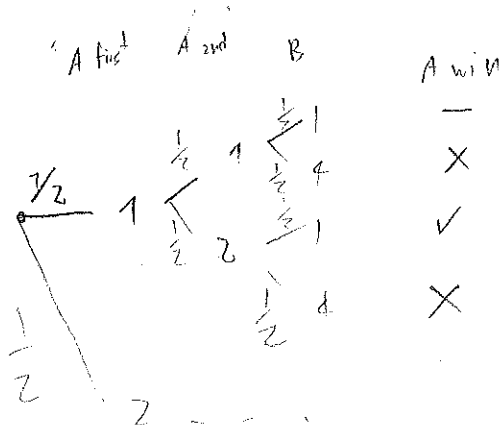 "A first A 2nd B A win
1/2 1 1/2 1 1/2 1 —
1/2 4 ×
1/2 2 1/2 1 ✓
1/2 4 ×
1/2 2 - - -